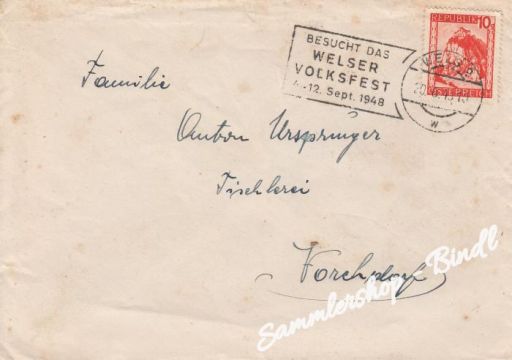 BESUCHT DAS
WELSER
VOLKSFEST
4.-12. Sept. 1948
WELS
w
REPUBLIK 10
ÖSTERREICH
Familie
Anton Ursprunger
Tischlerei
Vorchdorf
Sammlershop-Bindl